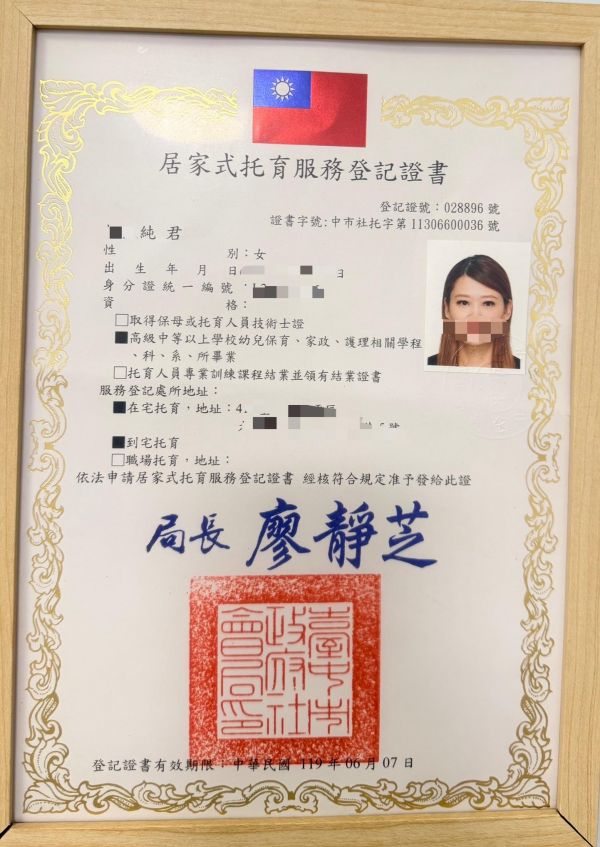 居家式托育服務登記證書
登記證號：028896 號
證書字號:中市社托字第 11306600036 號
純君
性別：女
出生年月日
身分證統一編號：
資格：
□取得保母或托育人員技術士證
■高級中等以上學校幼兒保育、家政、護理相關學程
、科、系、所畢業
□托育人員專業訓練課程結業並領有結業證書
服務登記處所地址：
■在宅托育，地址：4
號
■到宅托育
□職場托育，地址：
依法申請居家式托育服務登記證書 經核符合規定准予發給此證
局長 廖靜芝
臺中市
政府社
會局印
登記證書有效期限：中華民國 119 年 06 月 07 日